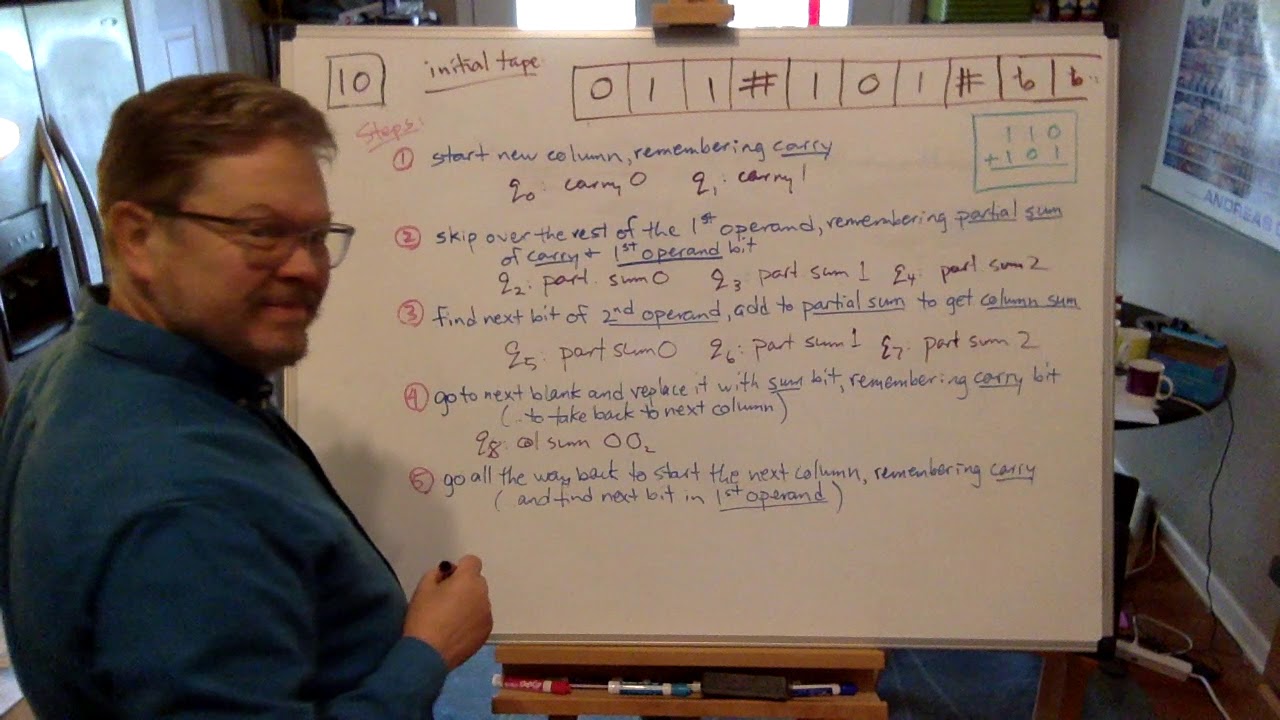 10 initial tape 0 1 1 # 1 0 1 # b b..
Steps:
1 1 0
+ 1 0 1
① start new column, remembering carry
q0: carry 0 q1: carry 1
② skip over the rest of the 1st operand, remembering partial sum
of carry + 1st operand bit
q2: part. sum 0 q3: part sum 1 q4: part sum 2
③ find next bit of 2nd operand, add to partial sum to get column sum
q5: part sum 0 q6: part sum 1 q7: part sum 2
④ go to next blank and replace it with sum bit, remembering carry bit
(.. to take back to next column)
q8: col sum 0 0 2
⑤ go all the way back to start the next column, remembering carry
(and find next bit in 1st operand)
ANDREAS